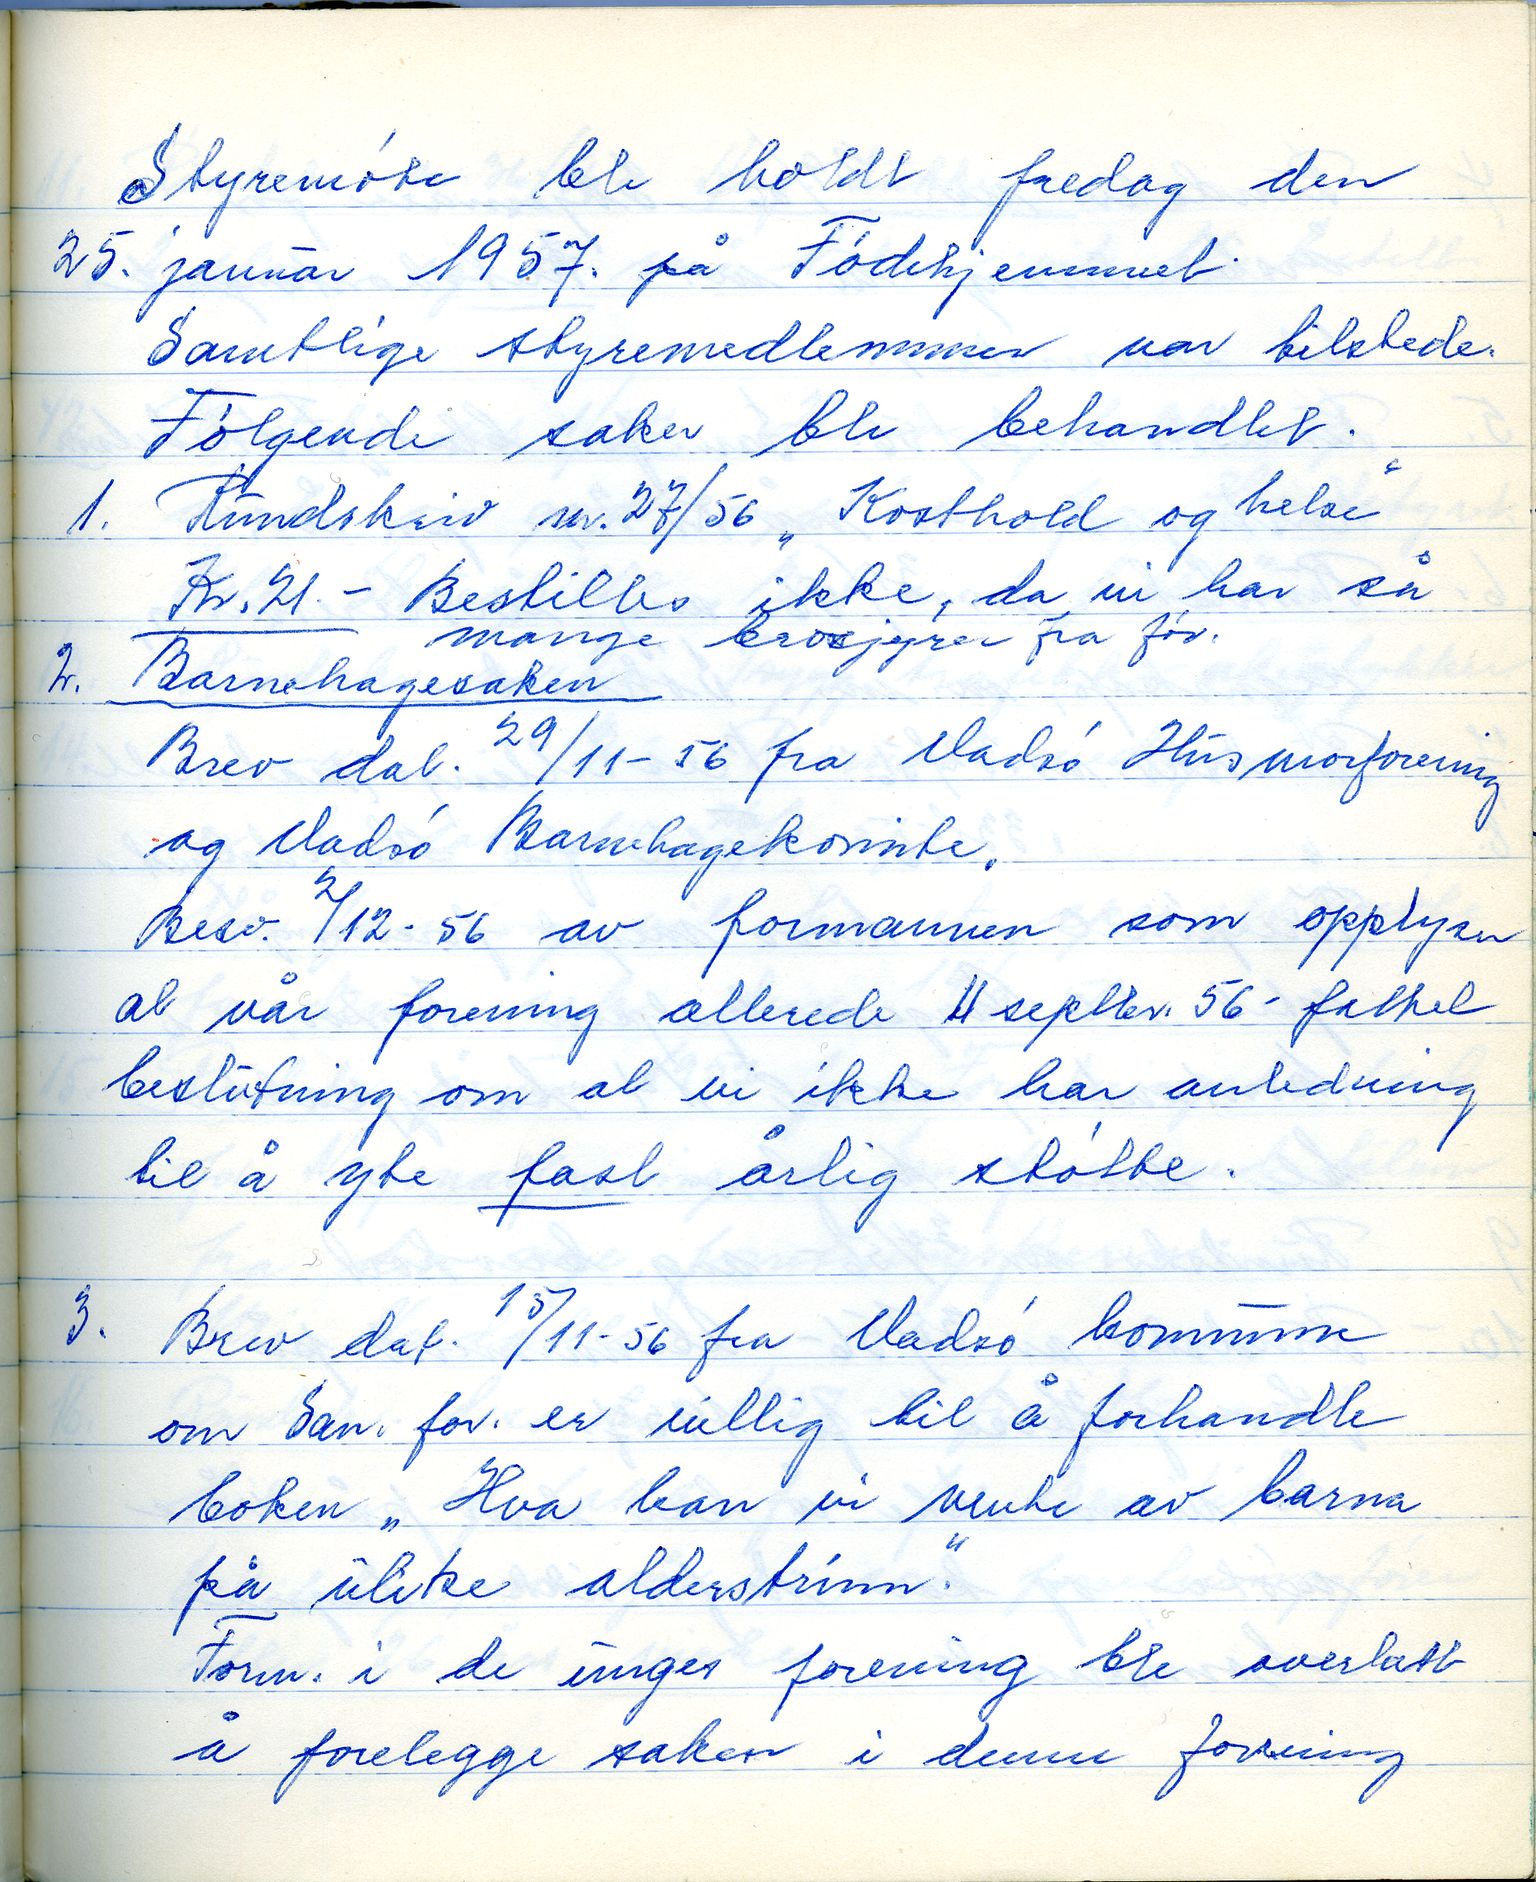 Styremóte ble holdt fredag den
25. januar 1957. på Fódehjemmet.
Samtlige styremedlemmer var tilstede.
Fólgende saker ble behandlet.
1. Rundskriv nr. 27/56 „Kosthold og helse"
Kr. 21.- Bestilles ikke, da vi har så
mange brosjyrer fra fór.
2. Barnehagesaken
Brev dat. 29/11-56 fra Vadsó Husmorforening
og Vadsó Barnehagekomite.
Besv. 2/12-56 av formannen som opplyser
at vår forening allerede 11 septbr. 56- fattet
beslutning om at vi ikke har anledning
til å yte fast årlig stótte.
3. Brev dat. 15/11-56 fra Vadsó kommune
om San. for. er villig til å forhandle
boken „Hva kan vi vente av barna
på ulike alderstrinn."
Form. i de unges forening ble overlatt
å forelegge saken i denne forening